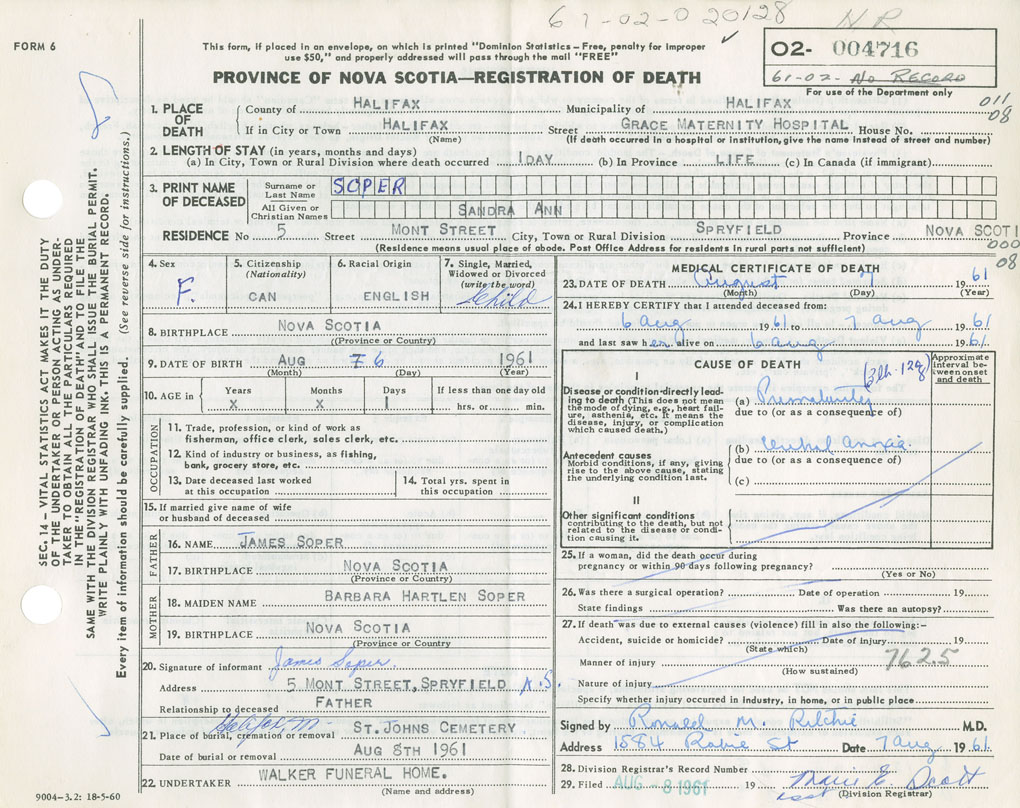 61-02-0 20128 NR
FORM 6
This form, if placed in an envelope, on which is printed "Dominion Statistics—Free, penalty for improper
use $50," and properly addressed will pass through the mail "FREE"
02- 004716
61-02- No RECORD
For use of the Department only
PROVINCE OF NOVA SCOTIA—REGISTRATION OF DEATH
011
08
1. PLACE OF DEATH
County of HALIFAX Municipality of HALIFAX
If in City or Town HALIFAX Street GRACE MATERNITY HOSPITAL House No.
(Name) (If death occurred in a hospital or institution, give the name instead of street and number)
2. LENGTH OF STAY (in years, months and days)
(a) In City, Town or Rural Division where death occurred 1DAY (b) In Province LIFE (c) In Canada (if immigrant)
3. PRINT NAME OF DECEASED
Surname or Last Name SOPER
All Given or Christian Names SANDRA ANN
RESIDENCE No 5 Street MONT STREET City, Town or Rural Division SPRYFIELD Province NOVA SCOTI
(Residence means usual place of abode. Post Office Address for residents in rural parts not sufficient)
000
08
4. Sex
F.
5. Citizenship (Nationality)
CAN
6. Racial Origin
ENGLISH
7. Single, Married, Widowed or Divorced (write the word)
Child
8. BIRTHPLACE NOVA SCOTIA
(Province or Country)
9. DATE OF BIRTH AUG 6 1961
(Month) (Day) (Year)
10. AGE in
Years Months Days If less than one day old
X X 1 hrs. or min.
OCCUPATION
11. Trade, profession, or kind of work as
fisherman, office clerk, sales clerk, etc.
12. Kind of industry or business, as fishing,
bank, grocery store, etc.
13. Date deceased last worked at this occupation
14. Total yrs. spent in this occupation
15. If married give name of wife
or husband of deceased
FATHER
16. NAME JAMES SOPER
17. BIRTHPLACE NOVA SCOTIA
(Province or Country)
MOTHER
18. MAIDEN NAME BARBARA HARTLEN SOPER
19. BIRTHPLACE NOVA SCOTIA
(Province or Country)
20. Signature of informant James Soper.
Address 5 MONT STREET, SPRYFIELD N.S.
Relationship to deceased FATHER
21. Place of burial, cremation or removal Halifax ST. JOHNS CEMETERY
Date of burial or removal AUG 8TH 1961
22. UNDERTAKER WALKER FUNERAL HOME.
(Name and address)
9004-3.2: 18-5-60
MEDICAL CERTIFICATE OF DEATH
23. DATE OF DEATH August 7 1961
(Month) (Day) (Year)
24. I HEREBY CERTIFY that I attended deceased from:
6 Aug 1961 to 7 Aug 1961
and last saw her alive on 6 Aug 1961.
CAUSE OF DEATH
Approximate interval between onset and death
I
Disease or condition directly leading to death (This does not mean the mode of dying, e.g., heart failure, asthenia, etc. It means the disease, injury, or complication which caused death.)
(a) Prematurity
due to (or as a consequence of)
Antecedent causes
Morbid conditions, if any, giving rise to the above cause, stating the underlying condition last.
(b) cerebral anoxia
due to (or as a consequence of)
(c)
II
Other significant conditions
contributing to the death, but not related to the disease or condition causing it.
25. If a woman, did the death occur during
pregnancy or within 90 days following pregnancy?
(Yes or No)
26. Was there a surgical operation? Date of operation 19
State findings Was there an autopsy?
27. If death was due to external causes (violence) fill in also the following:-
Accident, suicide or homicide? Date of injury 19
(State which)
Manner of injury 762.5
(How sustained)
Nature of injury
Specify whether injury occurred in industry, in home, or in public place
Signed by Ronald M. Ritchie M.D.
Address 1584 Robie St Date 7 Aug 1961.
28. Division Registrar's Record Number
29. Filed AUG -8 1961 19 E Scott
(Division Registrar)
SEC. 14 – VITAL STATISTICS ACT MAKES IT THE DUTY
OF THE UNDERTAKER OR PERSON ACTING AS UNDER-
TAKER TO OBTAIN ALL THE PARTICULARS REQUIRED
IN THE "REGISTRATION OF DEATH" AND TO FILE THE
SAME WITH THE DIVISION REGISTRAR WHO SHALL ISSUE THE BURIAL PERMIT.
WRITE PLAINLY WITH UNFADING INK. THIS IS A PERMANENT RECORD.
Every item of information should be carefully supplied. (See reverse side for instructions.)